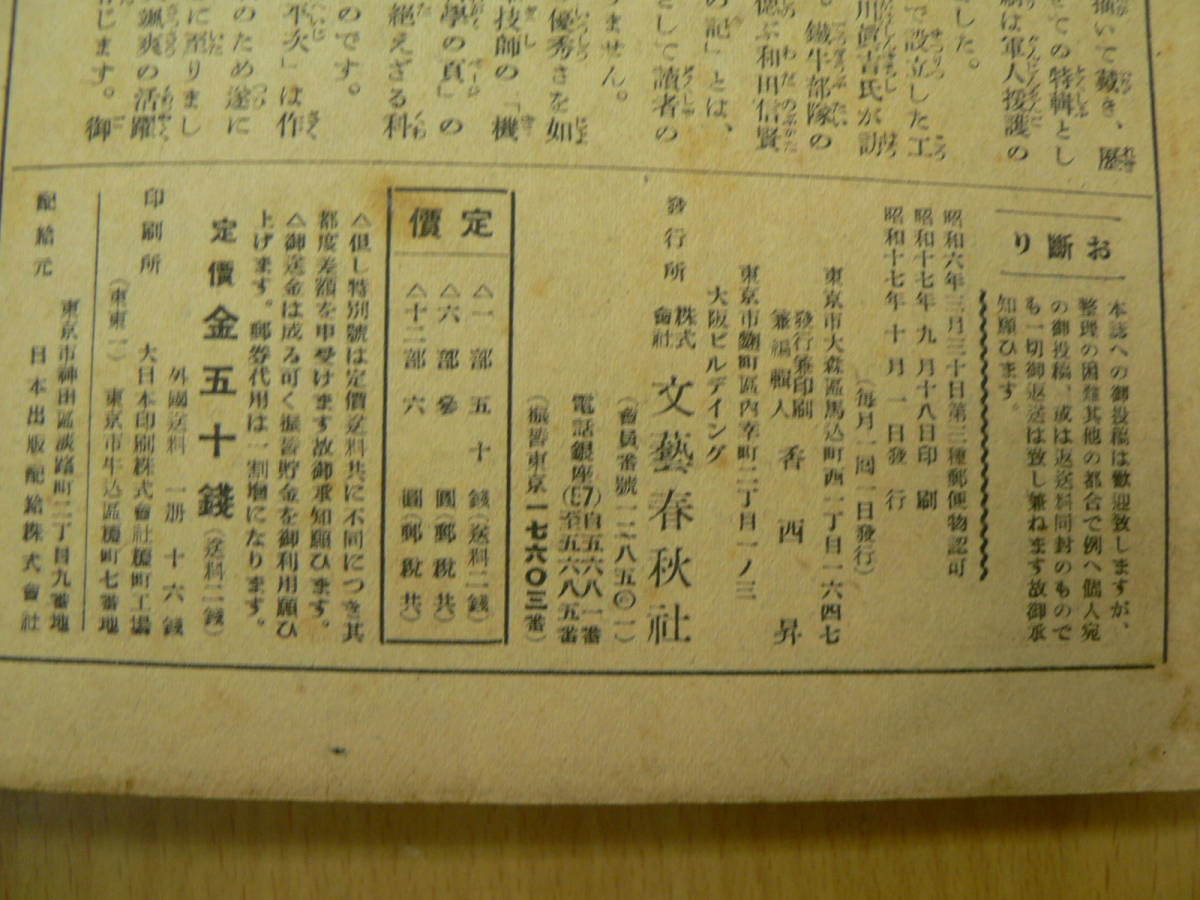 描いて戴き、歴
ての特輯とし
劇は軍人援護の
した。
で設立した工
川價吉氏が訪
。鐵牛部隊の
偲ぶ和田信賢
の記」とは、
として讀者の
ません。
優秀さを如
技師の「機
學の頁」の
絶えざる科
のです。
平次」は作
のため遂に
に至りまし
颯爽の活躍
じます。御
お斷り
本誌への御投稿は歡迎致しますが、
整理の困難其他の都合で例へ個人宛
の御投稿、或は返送料同封のもので
も一切御返送は致し兼ねます故御承
知願ひます。
昭和六年三月三十日第三種郵便物認可
昭和十七年九月十八日印刷
昭和十七年十月一日發行
(毎月一回一日發行)
東京市大森區馬込町西二丁目一六四七
發行兼印刷
兼編輯人 香西昇
東京市麴町區內幸町二丁目一ノ三
大阪ビルデイング
發行所 株式會社 文藝春秋社
(會員番號一二八五〇一)
電話銀座(57)自五六八一番至五六八五番
(振替東京一七六〇三番)
定價
△一部 五十錢(送料二錢)
△六部 參圓(郵稅共)
△十二部 六圓(郵稅共)
△但し特別號は定價送料共に不同につき其
都度差額を申受けます故御承知願ひます。
△御送金は成る可く振替貯金を御利用願ひ
上げます。郵券代用は一割增になります。
定價金五十錢(送料二錢)
外國送料 一册 十六錢
印刷所 大日本印刷株式會社榎町工場
(東東一) 東京市牛込區榎町七番地
配給元 東京市神田區淡路町二丁目九番地
日本出版配給株式會社